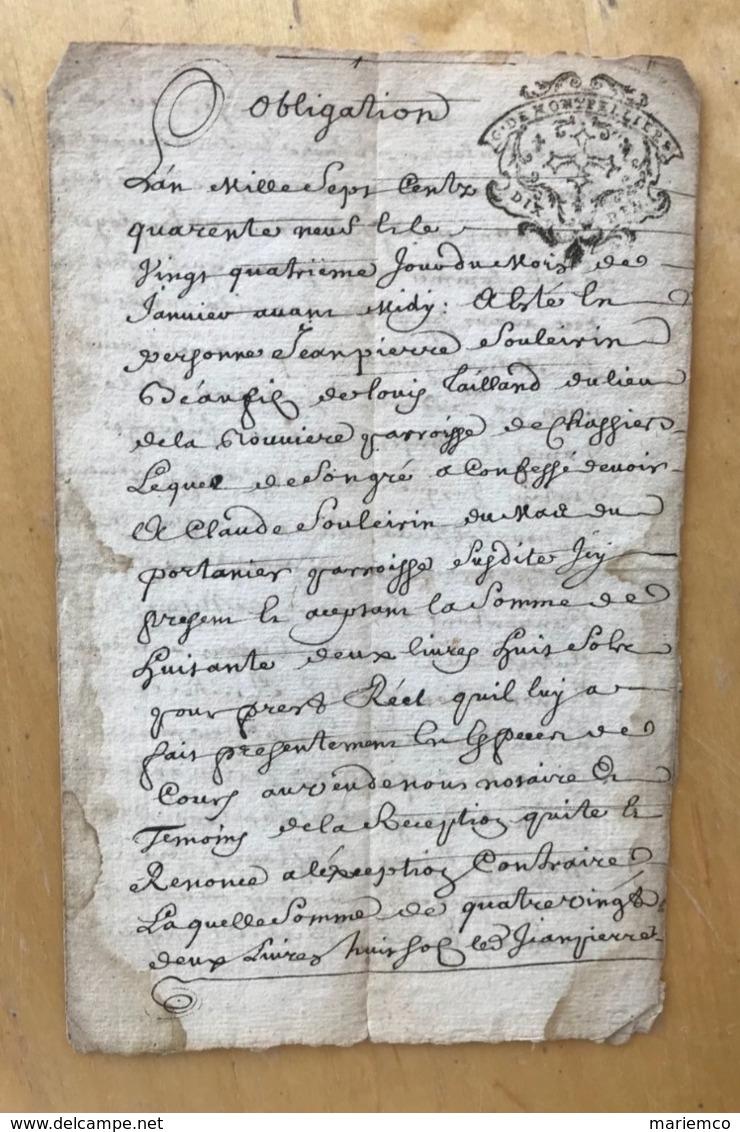 Obligation
G. DE MONTPELLIER
DIX DEN
L'án Mille Sept Centz
quarente neuf & le
Vingt quatriéme Jour du Mois de
Janvier avant Midy: A esté en
personne Jeanpierre Souleirin
Béaufilz de Louis Tailland du lieu
de la Rouviere parroisse de Chassiers
Lequel de Son gré a Confessé devoir
A Claude Souleirin du Mas du
portanier parroisse Susdite Icy
present & aceptant la Somme de
huitante deux livres huit Solz
pour prest Réel quil luy a
fait presentement en Especes de
Cours au veu de nous notaire &
Temoins de la Reception quite &
Renonce a l'éxception Contraire
Laquelle Somme de quatrevingts
deux Livres huit solz led Jeanpierre
www.delcampe.net
mariemco